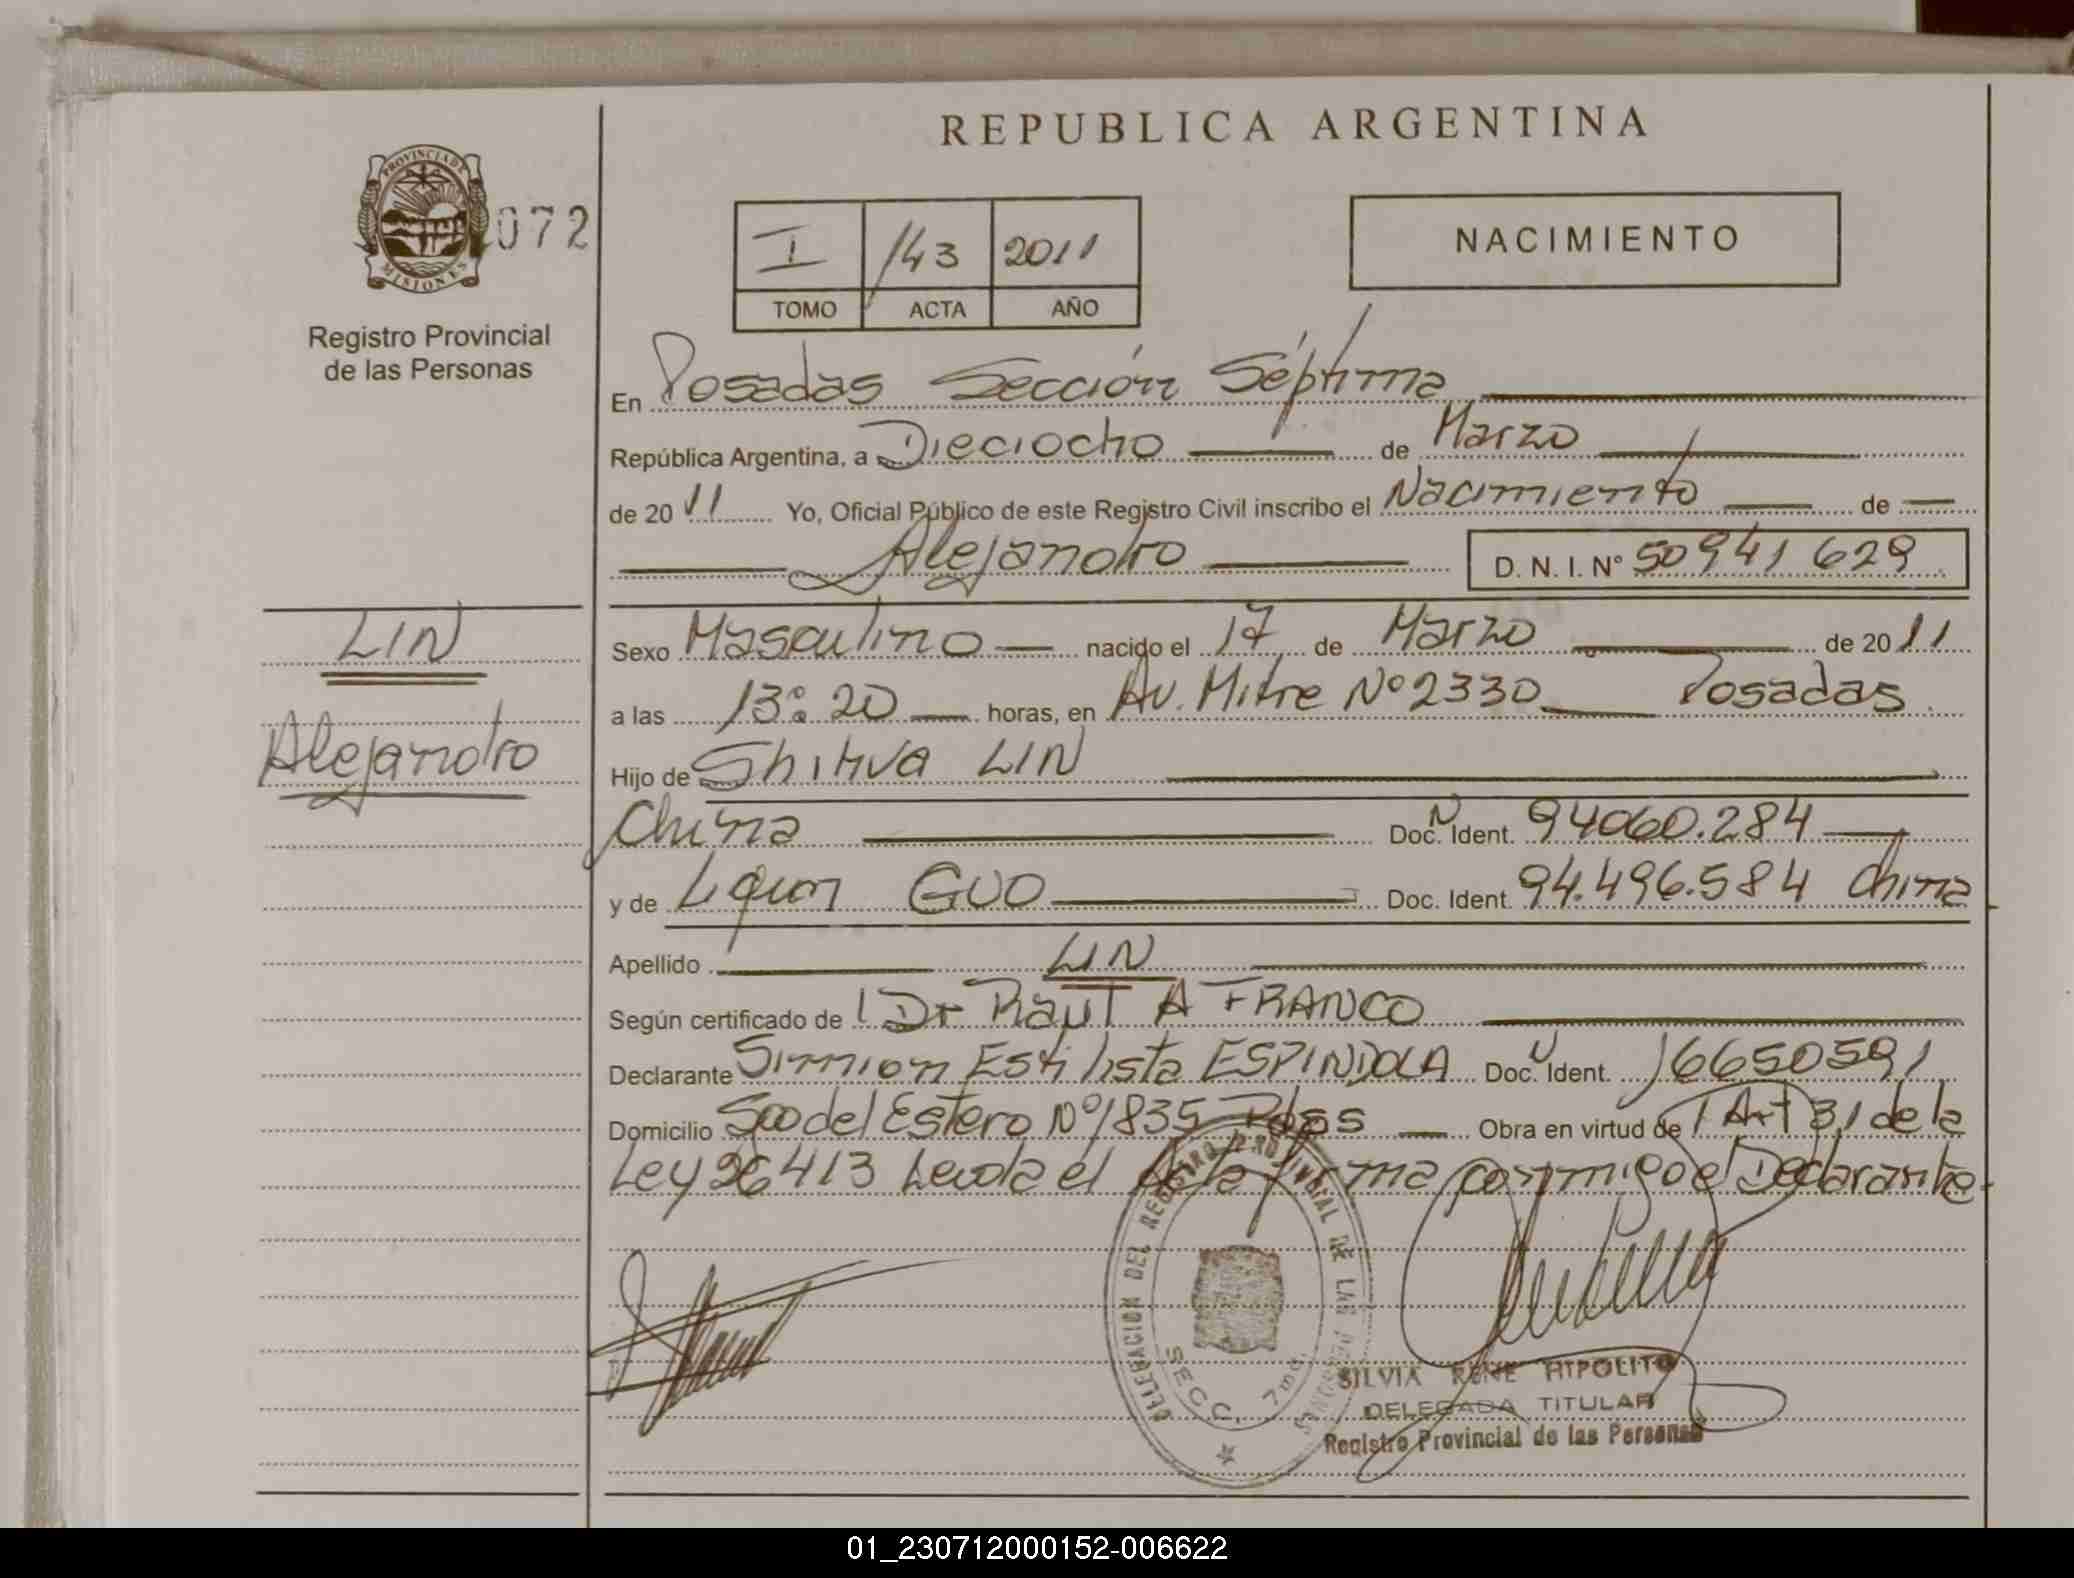 REPUBLICA ARGENTINA
PROVINCIA DE
MISIONES
072
Registro Provincial
de las Personas
I 143 2011
TOMO ACTA AÑO
NACIMIENTO
En Posadas Sección Séptima
República Argentina, a Dieciocho de Marzo
de 2011 Yo, Oficial Público de este Registro Civil inscribo el Nacimiento de
Alejandro D. N. I. Nº 50941629
LIN
Alejandro
Sexo Masculino nacido el 17 de Marzo de 2011
a las 13:20 horas, en Av. Mitre Nº 2330 Posadas
Hijo de Shihva LIN
China Doc. Ident. 94060.284
y de Liqun GUO Doc. Ident. 94.496.584 China
Apellido LIN
Según certificado de Dr Raul A FRANCO
Declarante Simion Estilista ESPINDOLA Doc. Ident. 16650591
Domicilio Sgo del Estero Nº 1835 Pdas Obra en virtud de Art 31 de la
Ley 26413 Leida el Acta firma conmigo el Declarante
DELEGACION DEL REGISTRO PROVINCIAL DE LAS PERSONAS
SECC. 7ma.
SILVIA RENE HIPOLITO
DELEGADA TITULAR
Registro Provincial de las Personas
01_230712000152-006622